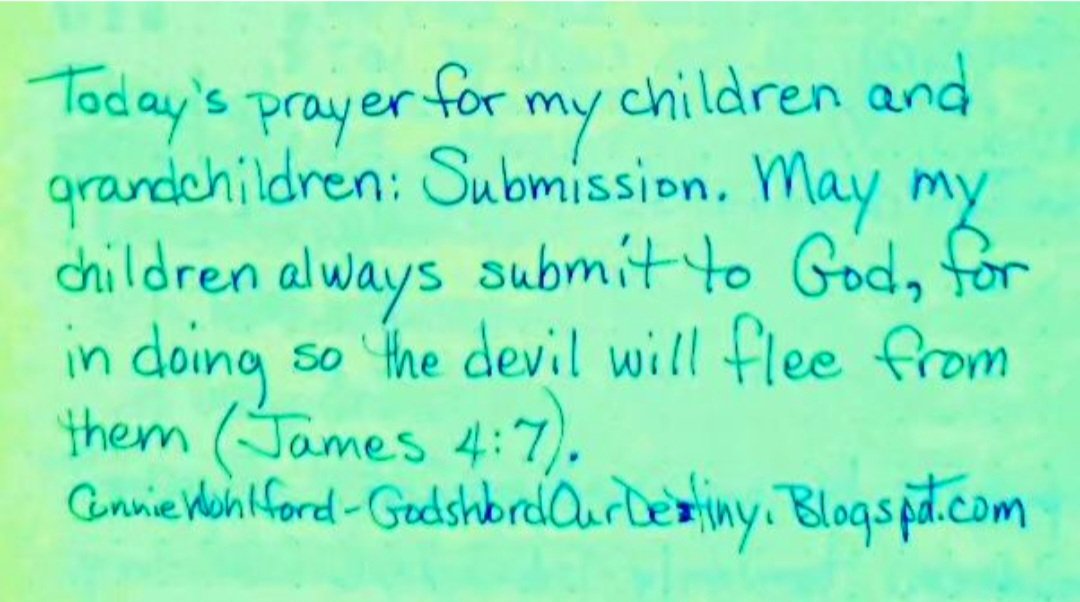 Today's prayer for my children and
grandchildren: Submission. May my
children always submit to God, for
in doing so the devil will flee from
them (James 4:7).
Connie Wohlford - GodsWordOurDestiny.Blogspot.com